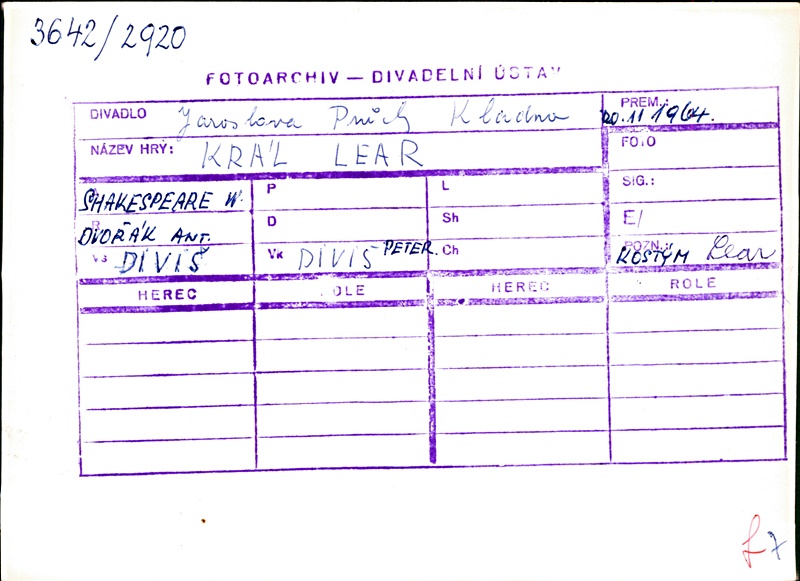 3642/2920
FOTOARCHIV — DIVADELNÍ ÚSTAV
DIVADLO Jaroslava Průch Kladno
PREM.: 20.11 1964.
NÁZEV HRY: KRÁL LEAR
FOTO
SHAKESPEARE W.
P
L
SIG.:
DVOŘÁK ANT.
D
Sh
E/
Vs DIVIŠ
Vk DIVIŠ PETER.
Ch
POZN.: KOSTÝM Lear
HEREC
ROLE
HEREC
ROLE